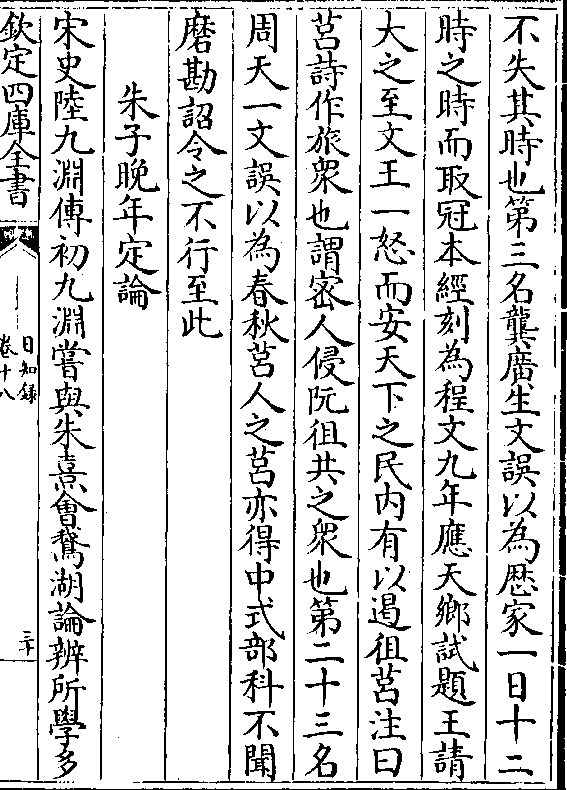 不失其時也第三名龔廣生文誤以為歴家一日十二
時之時而取冠本經刻為程文九年應天鄉試題王請
大之至文王一怒而安天下之民内有以遏徂莒注曰
莒詩作旅衆也謂密人侵阮徂共之衆也第二十三名
周天一文誤以為春秋莒人之莒亦得中式部科不聞
磨勘詔令之不行至此
朱子晚年定論
宋史陸九淵傳初九淵嘗與朱熹會鵞湖論辨所學多
欽定四庫全書
日知録
卷十八
三十